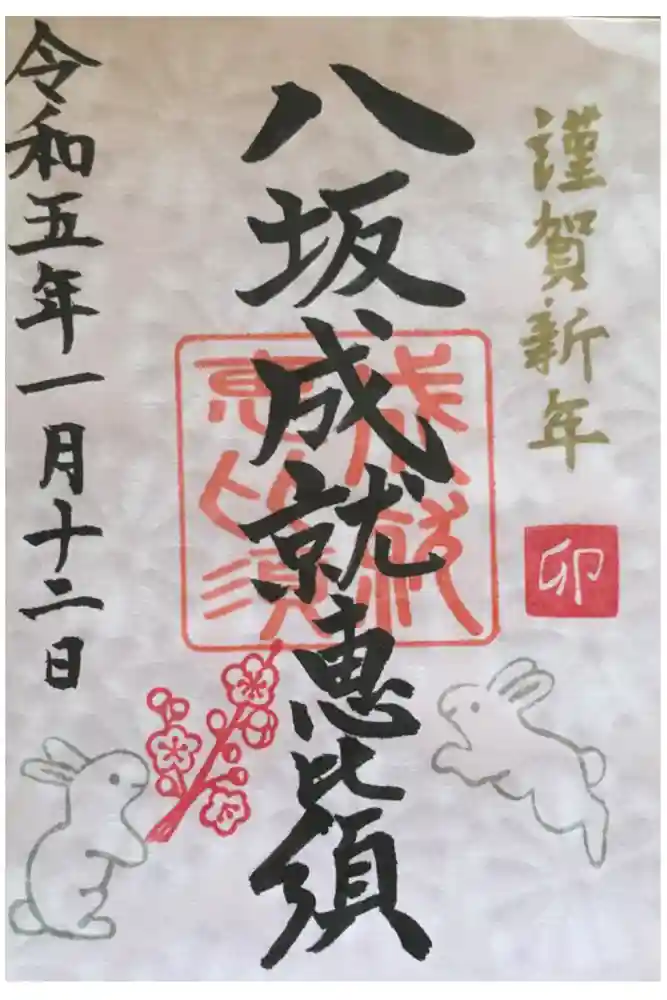 謹賀新年
卯
八坂成就恵比須
令和五年一月十二日